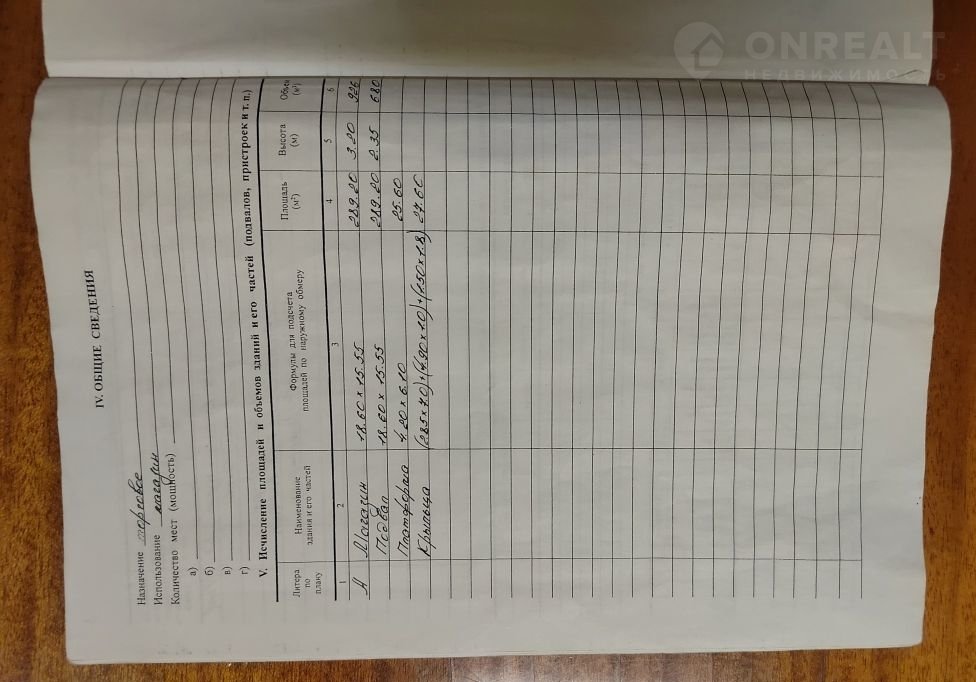 ONREALT
НЕДВИЖИМОСТЬ
IV. ОБЩИЕ СВЕДЕНИЯ
Назначение торговое
Использование магазин
Количество мест (мощность)
а)
б)
в)
г)
V. Исчисление площадей и объемов зданий и его частей (подвалов, пристроек и т. п.)
Литера по плану | Наименование здания и его частей | Формулы для подсчета площадей по наружному обмеру | Площадь (м²) | Высота (м) | Объем (м³)
1 2 3 4 5 6
А Магазин 18.60 х 15.55 289.20 3.20 926
Подвал 18.60 х 15.55 289.20 2.35 680
Платформа 4.20 х 6.10 25.60
Крыльца (2.85х7.0)+(4.90х1.0)+(1.50х1.8) 27.60